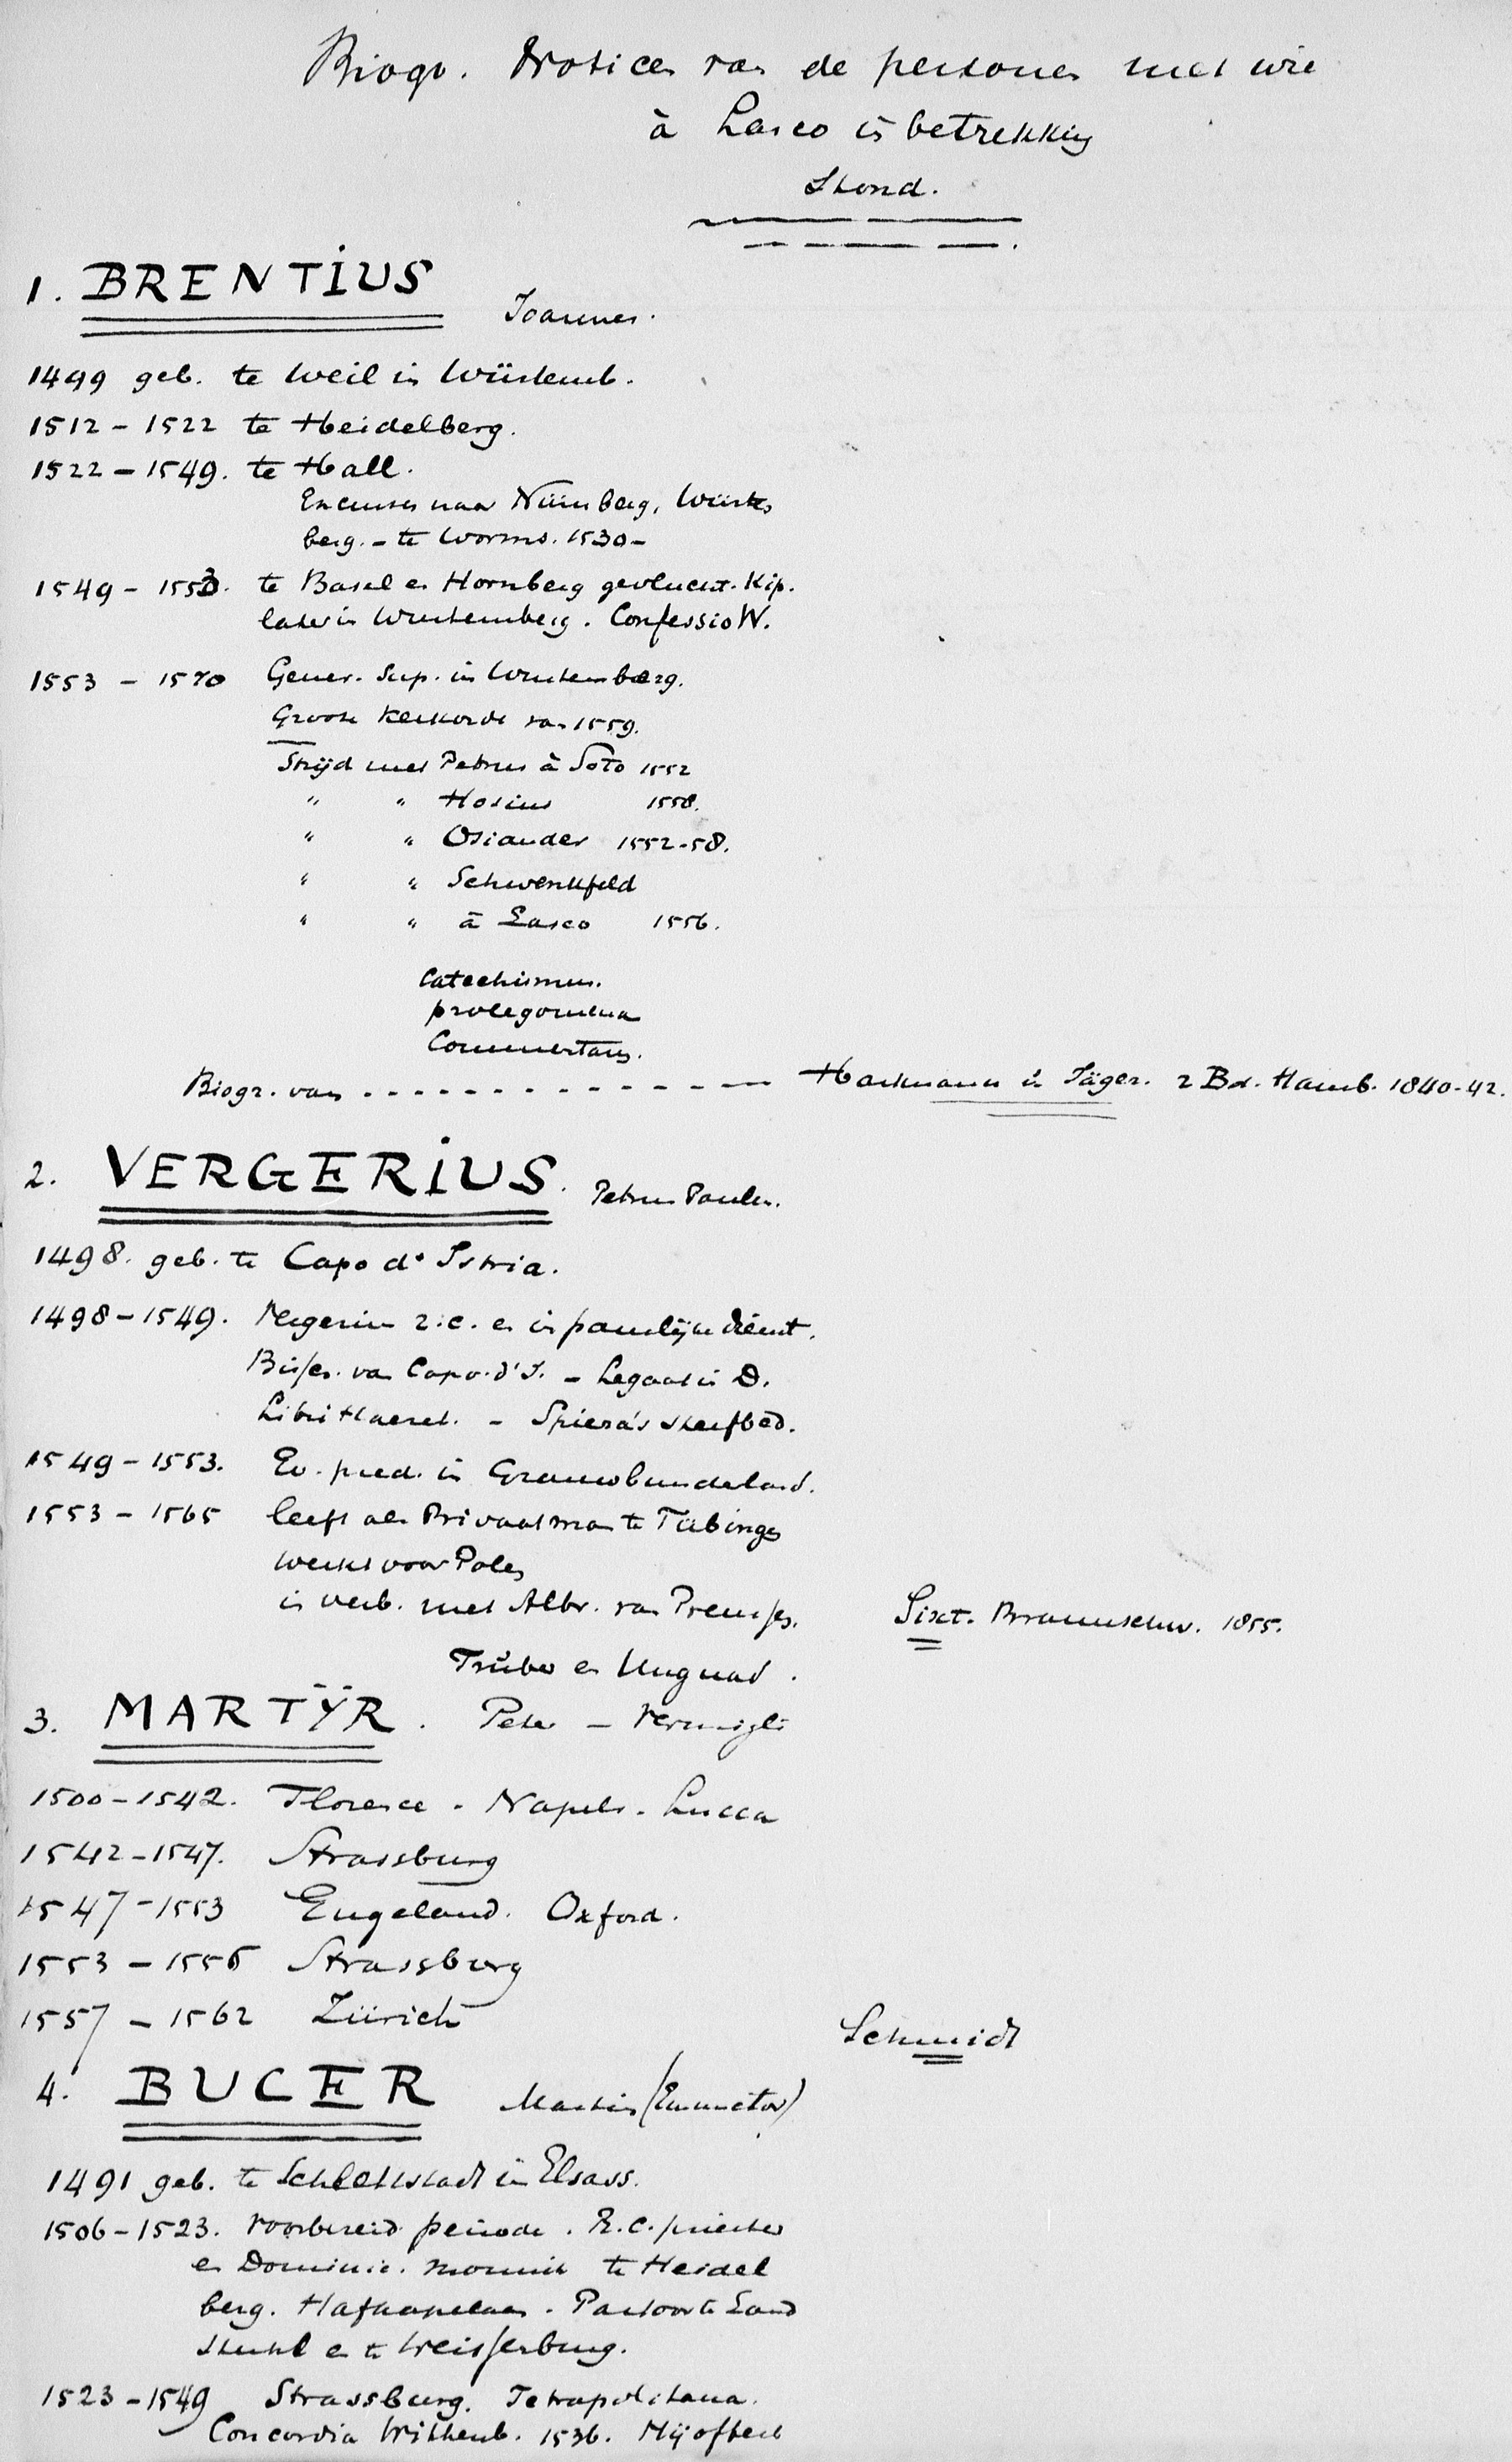 Biogr. Notices van de personen met wie
à Lasco in betrekking
stond.
1. BRENTIUS Joannes.
1499 geb. te Weil in Würtemb.
1512 - 1522 te Heidelberg.
1522 - 1549. te Hall.
Excursies naar Nürnberg, Würtem
berg. - te Worms. 1530 -
1549 - 1553. te Basel en Hornberg gevlucht.
later in Wurtemberg. Confessio W.
1553 - 1570 Gener. Sup. in Wurtemberg.
Groote Kerkorde van 1559.
Strijd met Petrus à Soto 1552
" " Hosius 1558.
" " Osiander 1552-58.
" " Schwenkfeld
" " à Lasco 1556.
Catechismus.
prolegomena
Commentars.
Biogr. van - - - - - - - - - - - Hartmann u Jäger. 2 Bd. Hamb. 1840-42.
2. VERGERIUS. Petrus Paulus.
1498. geb. te Capo d'Istria.
1498 - 1549. Vergerius r.c. en in pauselijken dienst.
Bissch. van Capo d'I. - Legaat in D.
Libri Haeret. - Spiera's sterfbed.
1549 - 1553. Ev. pred. in Grauwbunderland.
1553 - 1565 leeft als Privaatman te Tübingen
werkt voor Polen
in verb. met Albr. van Preussen. Sixt. Braunschw. 1855.
Trüber en Ungnad.
3. MARTYR. Peter - Vermigli
1500 - 1542. Florence - Napels - Lucca
1542 - 1547. Strassburg
1547 - 1553 Engeland. Oxford.
1553 - 1556 Strassburg
1557 - 1562 Zürich Schmidt
4. BUCER Martin (Emunctor)
1491 geb. te Schlettstadt in Elsass.
1506 - 1523. Voorbereid. periode. R.C. priester
en Dominic. monnik te Heidel
berg. Hofkapelaan. Pastoor te Land
stuhl en te Weissenburg.
1523 - 1549 Strassburg. Tetrapolitana.
Concordia Wittenb. 1536. Hij ofbect